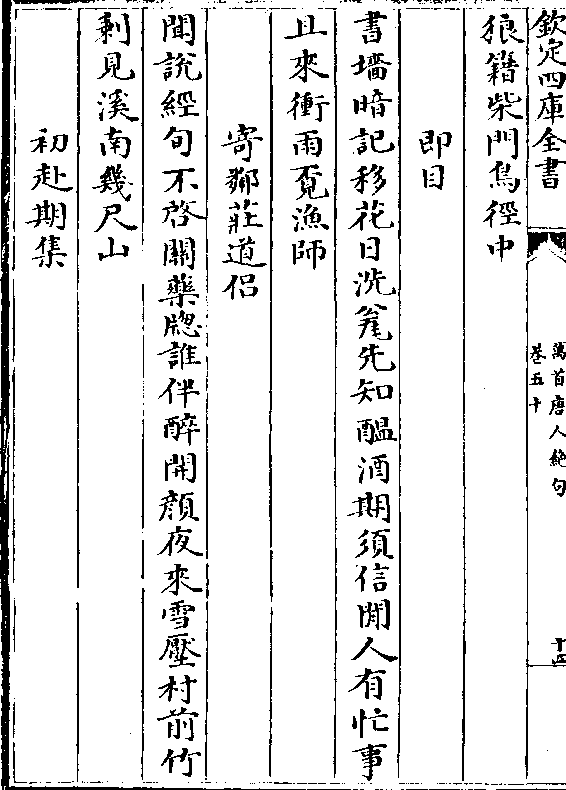 欽定四庫全書
萬首唐人絶句
卷五十
十四
狼籍柴門鳥徑中
即目
書墻暗記移花日洗瓮先知醖酒期須信閒人有忙事
且來衝雨覔漁師
寄鄰莊道侣
聞說經旬不啓關藥牕誰伴醉開顔夜來雪壓村前竹
剰見溪南幾尺山
初赴期集